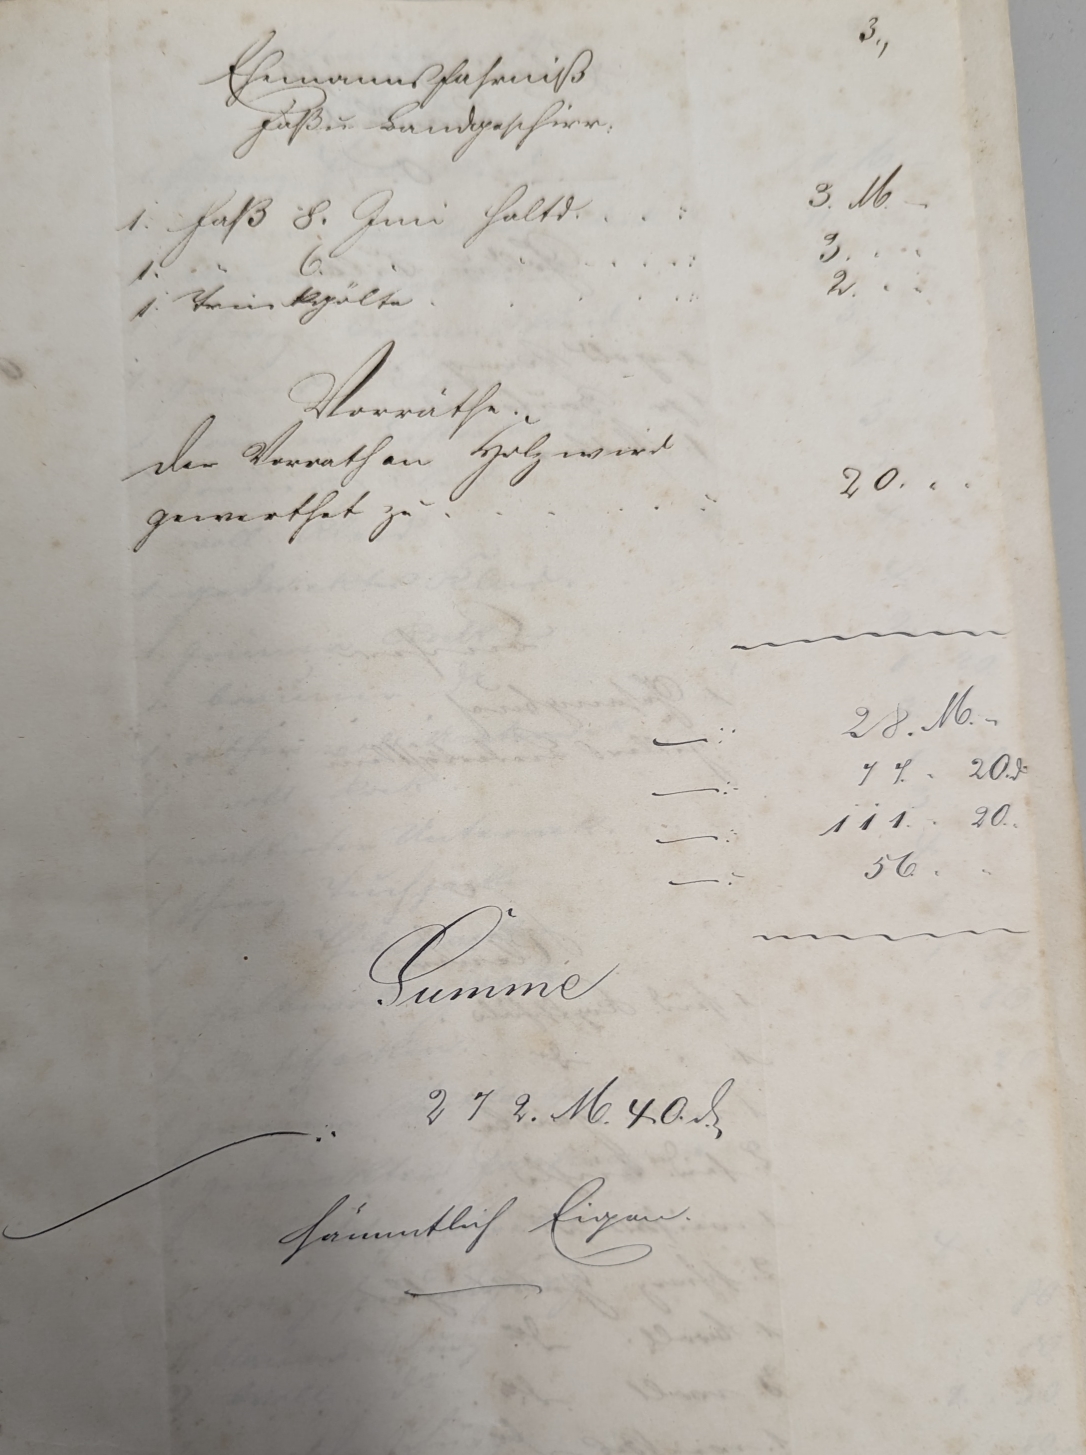 3.,
Ehemanns Fahrniß
Faß u Bandgeschirr.
1. Faß 8. Imi haltd. . . : 3. M. –
1. " 6. " . . . . : 3. " "
1. Trinkgölte . . . . : 2. " "
Vorräthe.
Der Vorrath an Holz wird
gewerthet zu . . . . . : 20. " "
—: 28. M. –
—: 77. " 20. d
—: 111. " 20. "
—: 56. " "
Summe
—: 272. M. 40. d
sämmtlich Eigen.